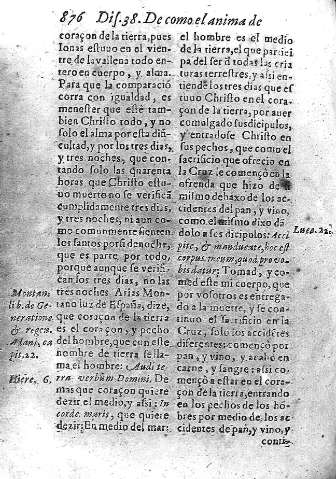 876 Dis. 38. De como el anima de
coraçon de la tierra, pues
Ionas estuuo en el vien-
tre de la vallena todo en-
tero en cuerpo, y alma.
Para que la comparació
corra con igualdad, es
menester que estè tam
bien Christo todo, y no
solo el alma por esta difi-
cultad, y por los tres dias,
y tres noches, que con-
tando solo las quarenta
horas que Christo estu-
uo muerto no se verificã
cumplidamente tres dias,
y tres noches, ni aun co-
mo comunmente sienten
los santos por sinedoche,
que es parte por todo,
porque aunque se verifi-
can los tres dias, no las
tres noches. Arias Mon-
tano luz de España, dize,
que coraçon de la tierra
es el coraçon, y pecho
del hombre, que con este
nombre de tierra se lla-
ma el hombre: Audi te-
rra verbum Domini. De
mas que coraçon quiere
dezir el medio, y assi: In
corde maris, que quiere
dezir: En medio del mar:
Montan.
lib. de Ge-
neratione
& regen.
Mani, ca
pis. 22.
Hiere. 6.
el hombre es el medio
de la tierra, el que partici
pa del ser d todas las cria
turas terrestres, y assi en-
tiende los tres dias que es
tuuo Christo en el cora-
çon de la tierra, por auer
comulgado sus dicipulos,
y entradose Christo en
sus pechos, que como el
sacrificio que ofrecio en
la Cruz, le començò en la
ofrenda que hizo de si
mismo debaxo de los ac-
cidentes del pan, y vino,
como el mismo dixo dã
dolo a los dicipulos: Acci
pite, & manducate, hoc est
corpus meum, quod pro vo-
bis datur: Tomad, y co-
med este mi cuerpo, que
por vosotros es entrega-
do a la muerte, y se con-
tinuò el sacrificio en la
Cruz, solo los accidẽtes
diferentes: començò por
pan, y vino, y acabó en
carne, y sangre: assi co-
mençò a estar en el cora-
çon de la tierra, entrando
en los pechos de los hõ-
bres por medio de los ac-
cidentes de pan, y vino, y
conti-
Luca. 22.